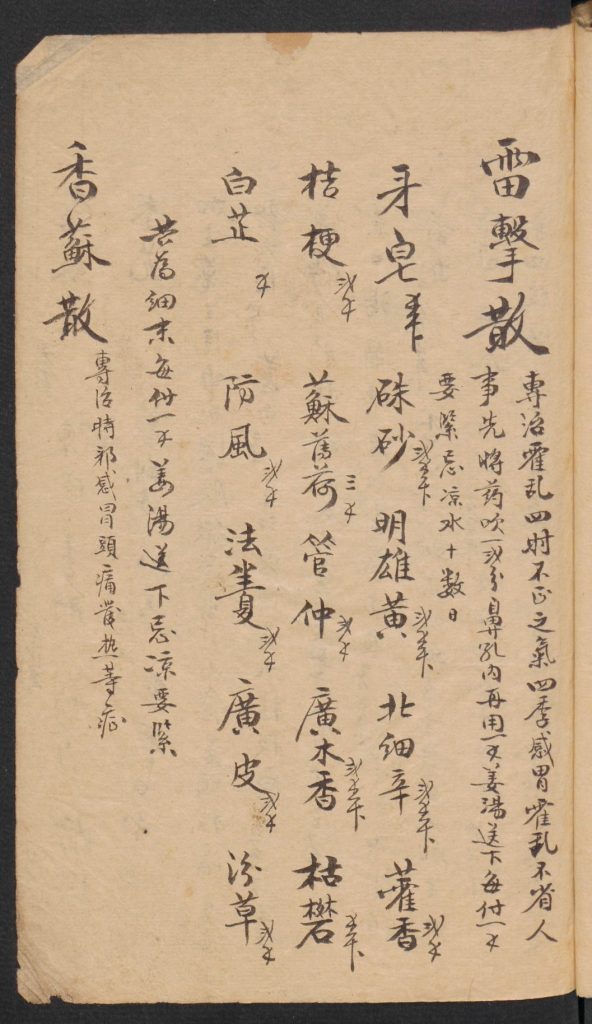 雷擊散
專治霍乱四时不正之氣四季感冒霍乱不省人
事先將药吹一弍分鼻孔内再用一才姜湯送下每付一才
要緊忌凉水十数日
牙皂 硃砂 明雄黄 北細辛 藿香弍才
桔梗弍才 蘇薄荷三才 管仲弍才 廣木香 枯礬
白芷才 防風弍才 法夏弍才 廣皮弍才 汾草弍才
共為細末每付一才姜湯送下忌凉要緊
香蘇散
專治時邪感冒頭痛發热等症